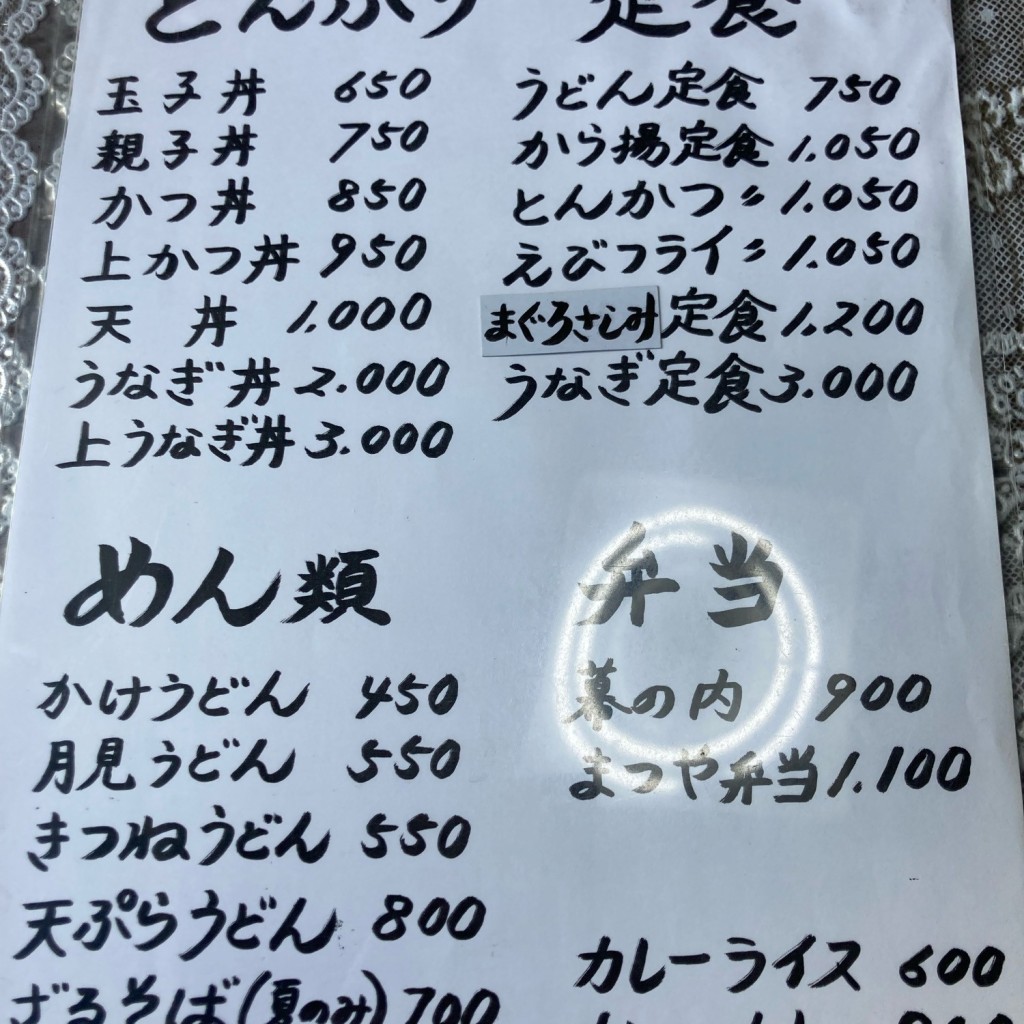 どんぶり
玉子丼 650
親子丼 750
かつ丼 850
上かつ丼 950
天丼 1.000
うなぎ丼 2.000
上うなぎ丼 3.000
定食
うどん定食 750
から揚定食 1.050
とんかつ〃 1.050
えびフライ〃 1.050
まぐろさしみ定食 1.200
うなぎ定食 3.000
めん類
かけうどん 450
月見うどん 550
きつねうどん 550
天ぷらうどん 800
ざるそば(夏のみ) 700
弁当
幕の内 900
まつや弁当 1.100
カレーライス 600